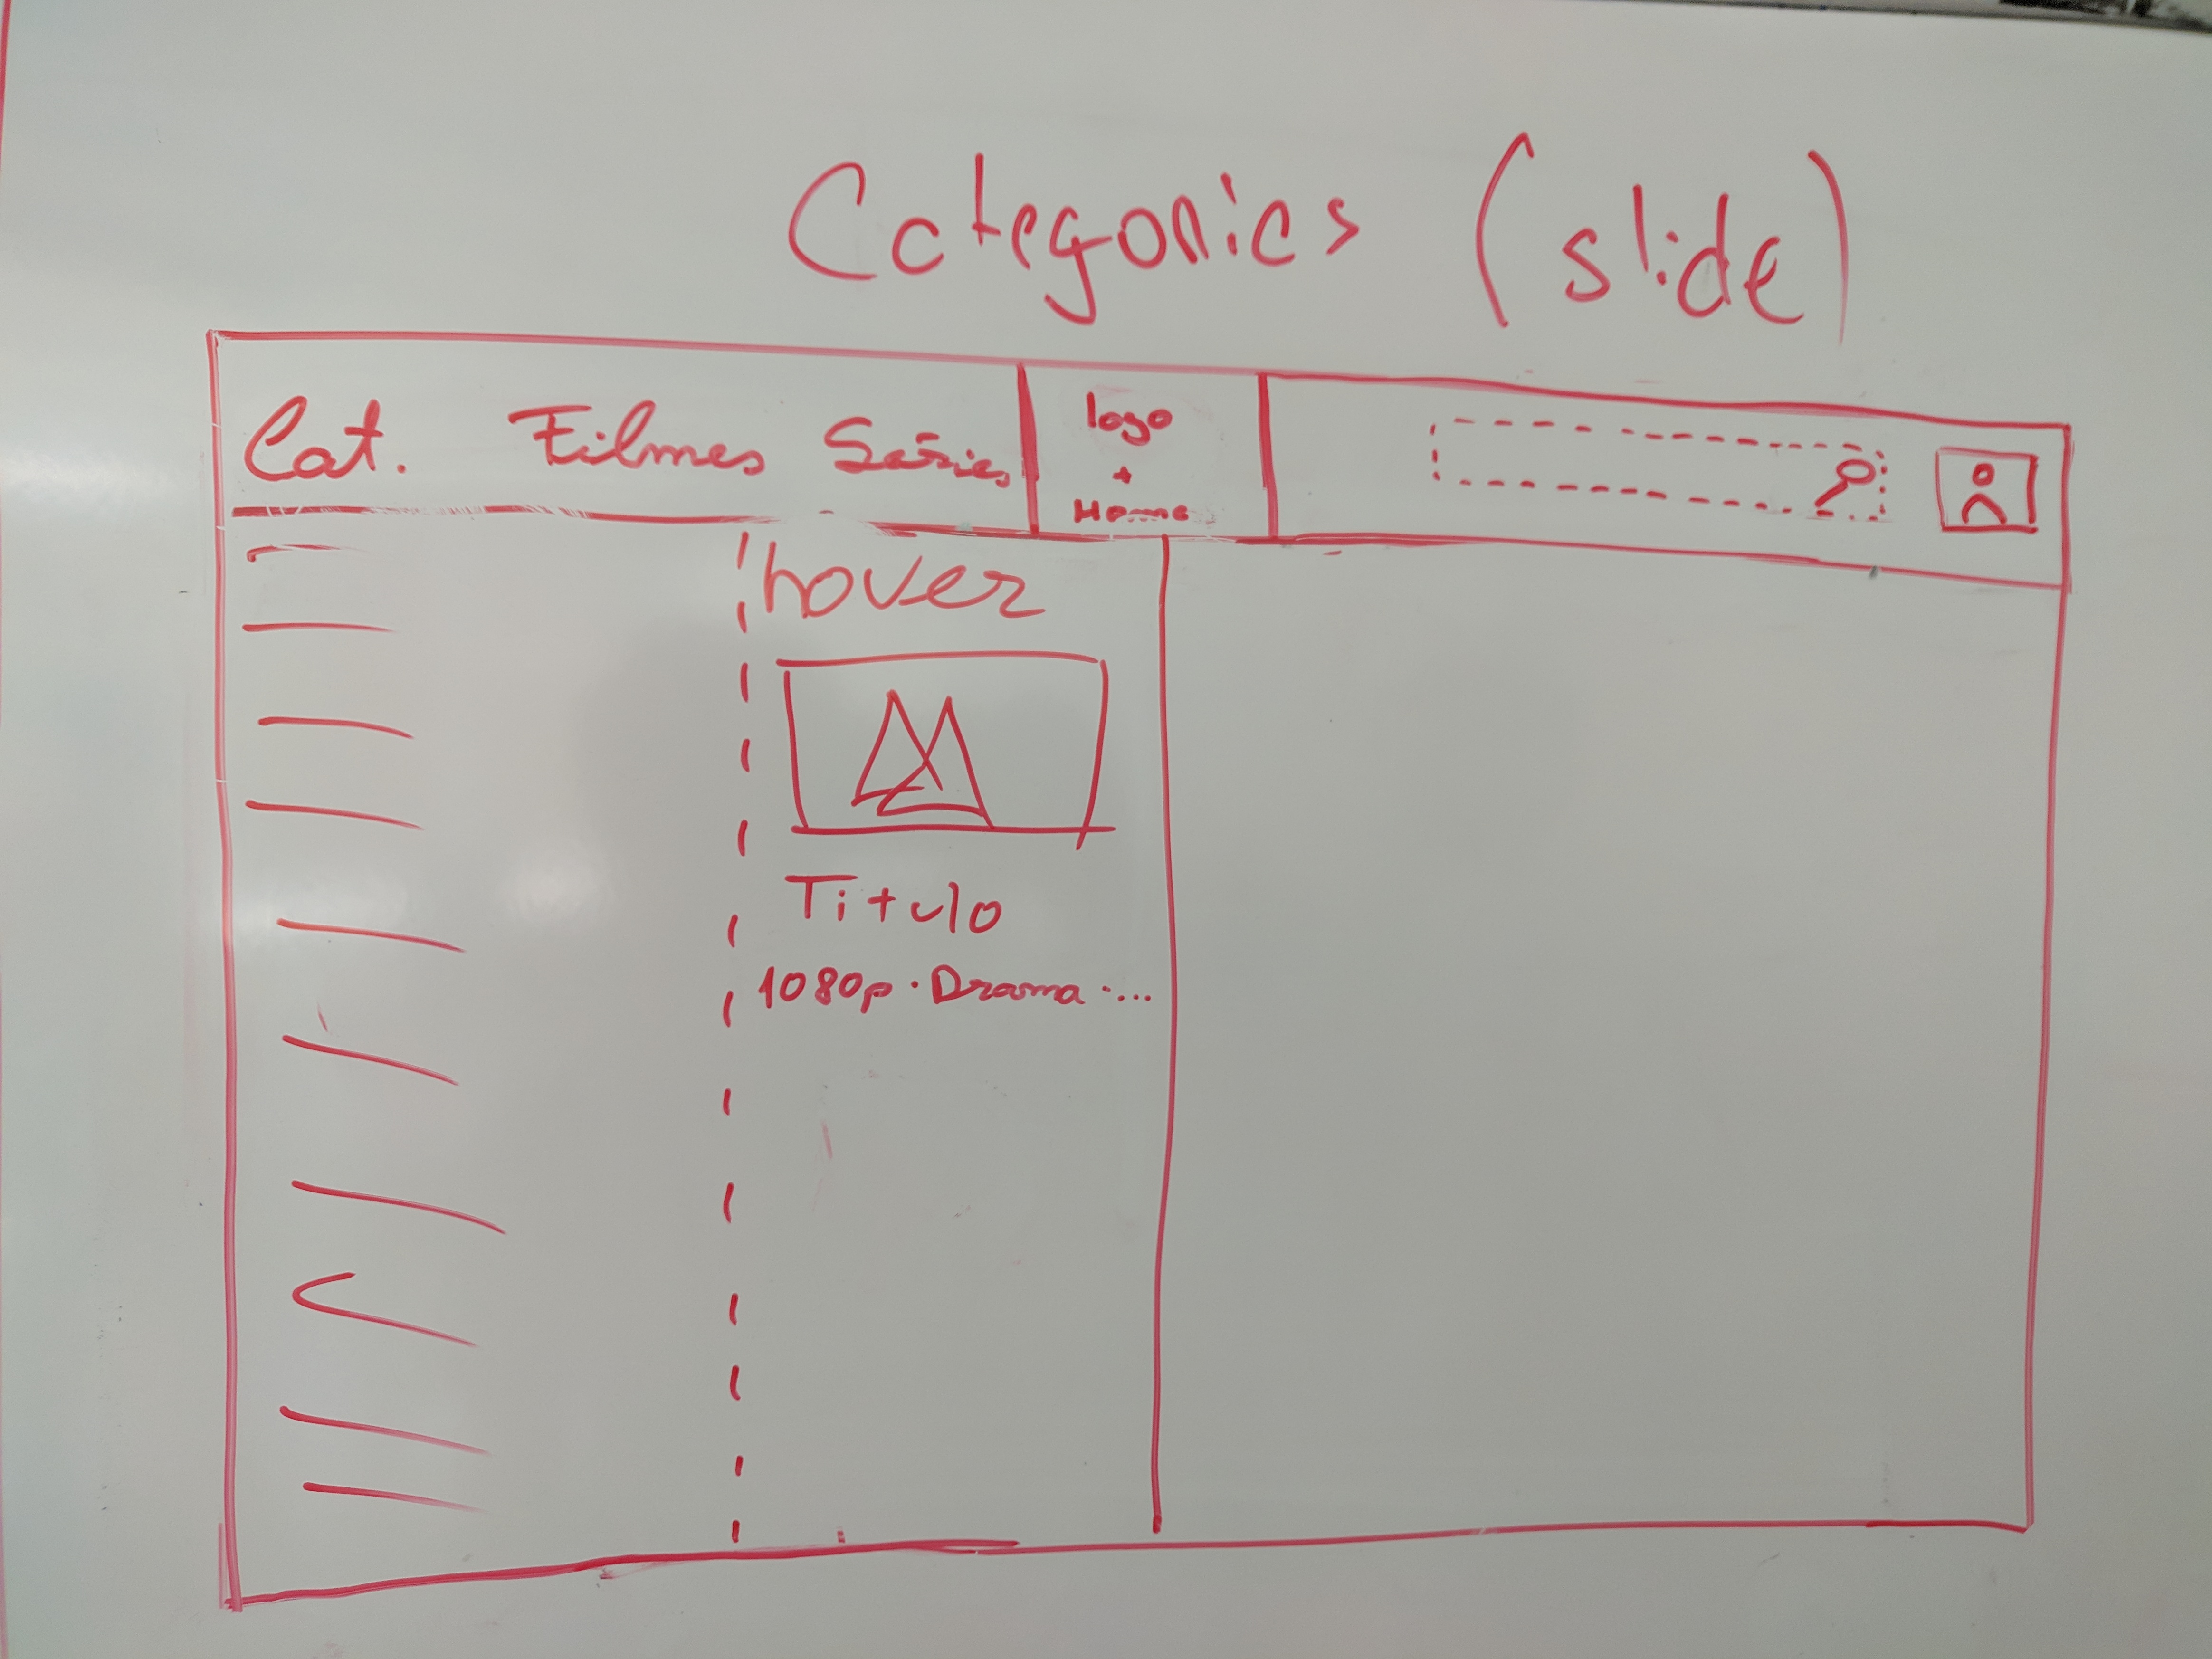 Categories (slide)
Cat. Filmes Séries
logo
+
Home
hover
Titulo
1080p · Drama · ...